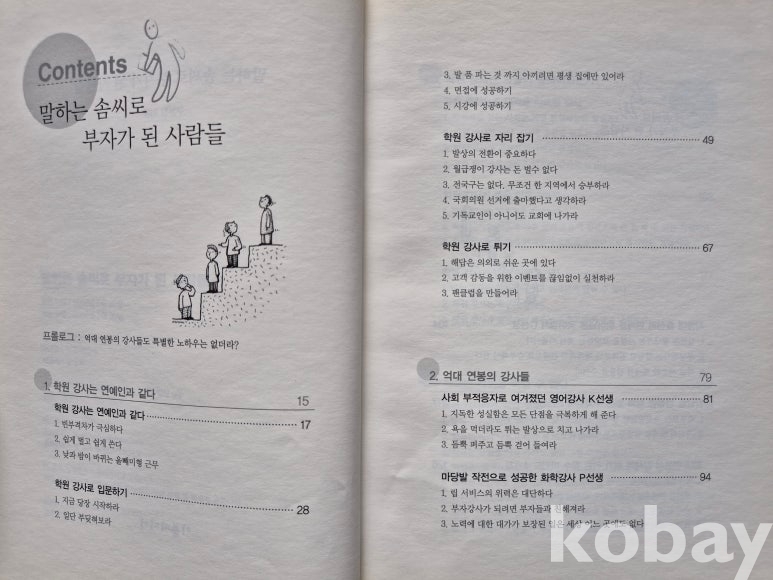 Contents
말하는 솜씨로
부자가 된 사람들
프롤로그 : 억대 연봉의 강사들도 특별한 노하우는 없더라?
1. 학원 강사는 연예인과 같다 15
학원 강사는 연예인과 같다 17
1. 빈부격차가 극심하다
2. 쉽게 벌고 쉽게 쓴다
3. 낮과 밤이 바뀌는 올빼미형 근무
학원 강사로 입문하기 28
1. 지금 당장 시작하라
2. 일단 부딪혀보라
3. 발 품 파는 것 까지 아끼려면 평생 집에만 있어라
4. 면접에 성공하기
5. 시강에 성공하기
학원 강사로 자리 잡기 49
1. 발상의 전환이 중요하다
2. 월급쟁이 강사는 돈 벌수 없다
3. 전국구는 없다. 무조건 한 지역에서 승부하라
4. 국회의원 선거에 출마했다고 생각하라
5. 기독교인이 아니어도 교회에 나가라
학원 강사로 튀기 67
1. 해답은 의외로 쉬운 곳에 있다
2. 고객 감동을 위한 이벤트를 끊임없이 실천하라
3. 팬클럽을 만들어라
2. 억대 연봉의 강사들 79
사회 부적응자로 여겨졌던 영어강사 K선생 81
1. 지독한 성실함은 모든 단점을 극복하게 해 준다
2. 욕을 먹더라도 튀는 발상으로 치고 나가라
3. 듬뿍 퍼주고 듬뿍 걷어 들여라
마당발 작전으로 성공한 화학강사 P선생 94
1. 립 서비스의 위력은 대단하다
2. 부자강사가 되려면 부자들과 친해져라
3. 노력에 대한 대가가 보장된 일은 세상 어느 곳에도 없다
kobay